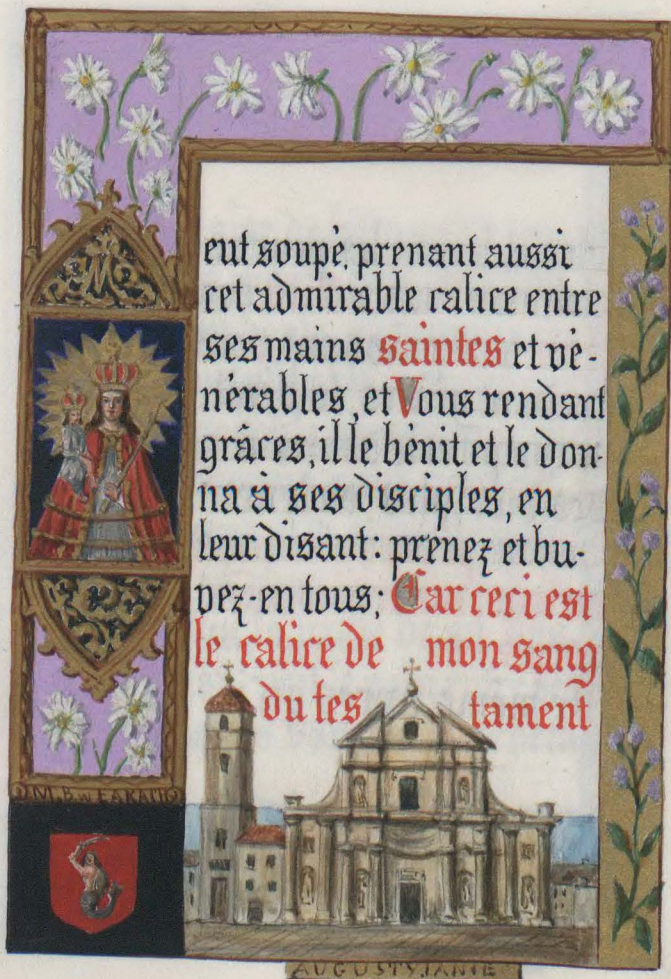 eut soupè, prenant aussi
cet admirable calice entre
ses mains saintes et vè-
nèrables, et Vous rendant
grâces, il le bènit et le don-
na à ses disciples, en
leur disant: prenez et bu-
vez-en tous; Car ceci est
le calice de mon sang
du tes tament
M
AUGUSTYJANIE